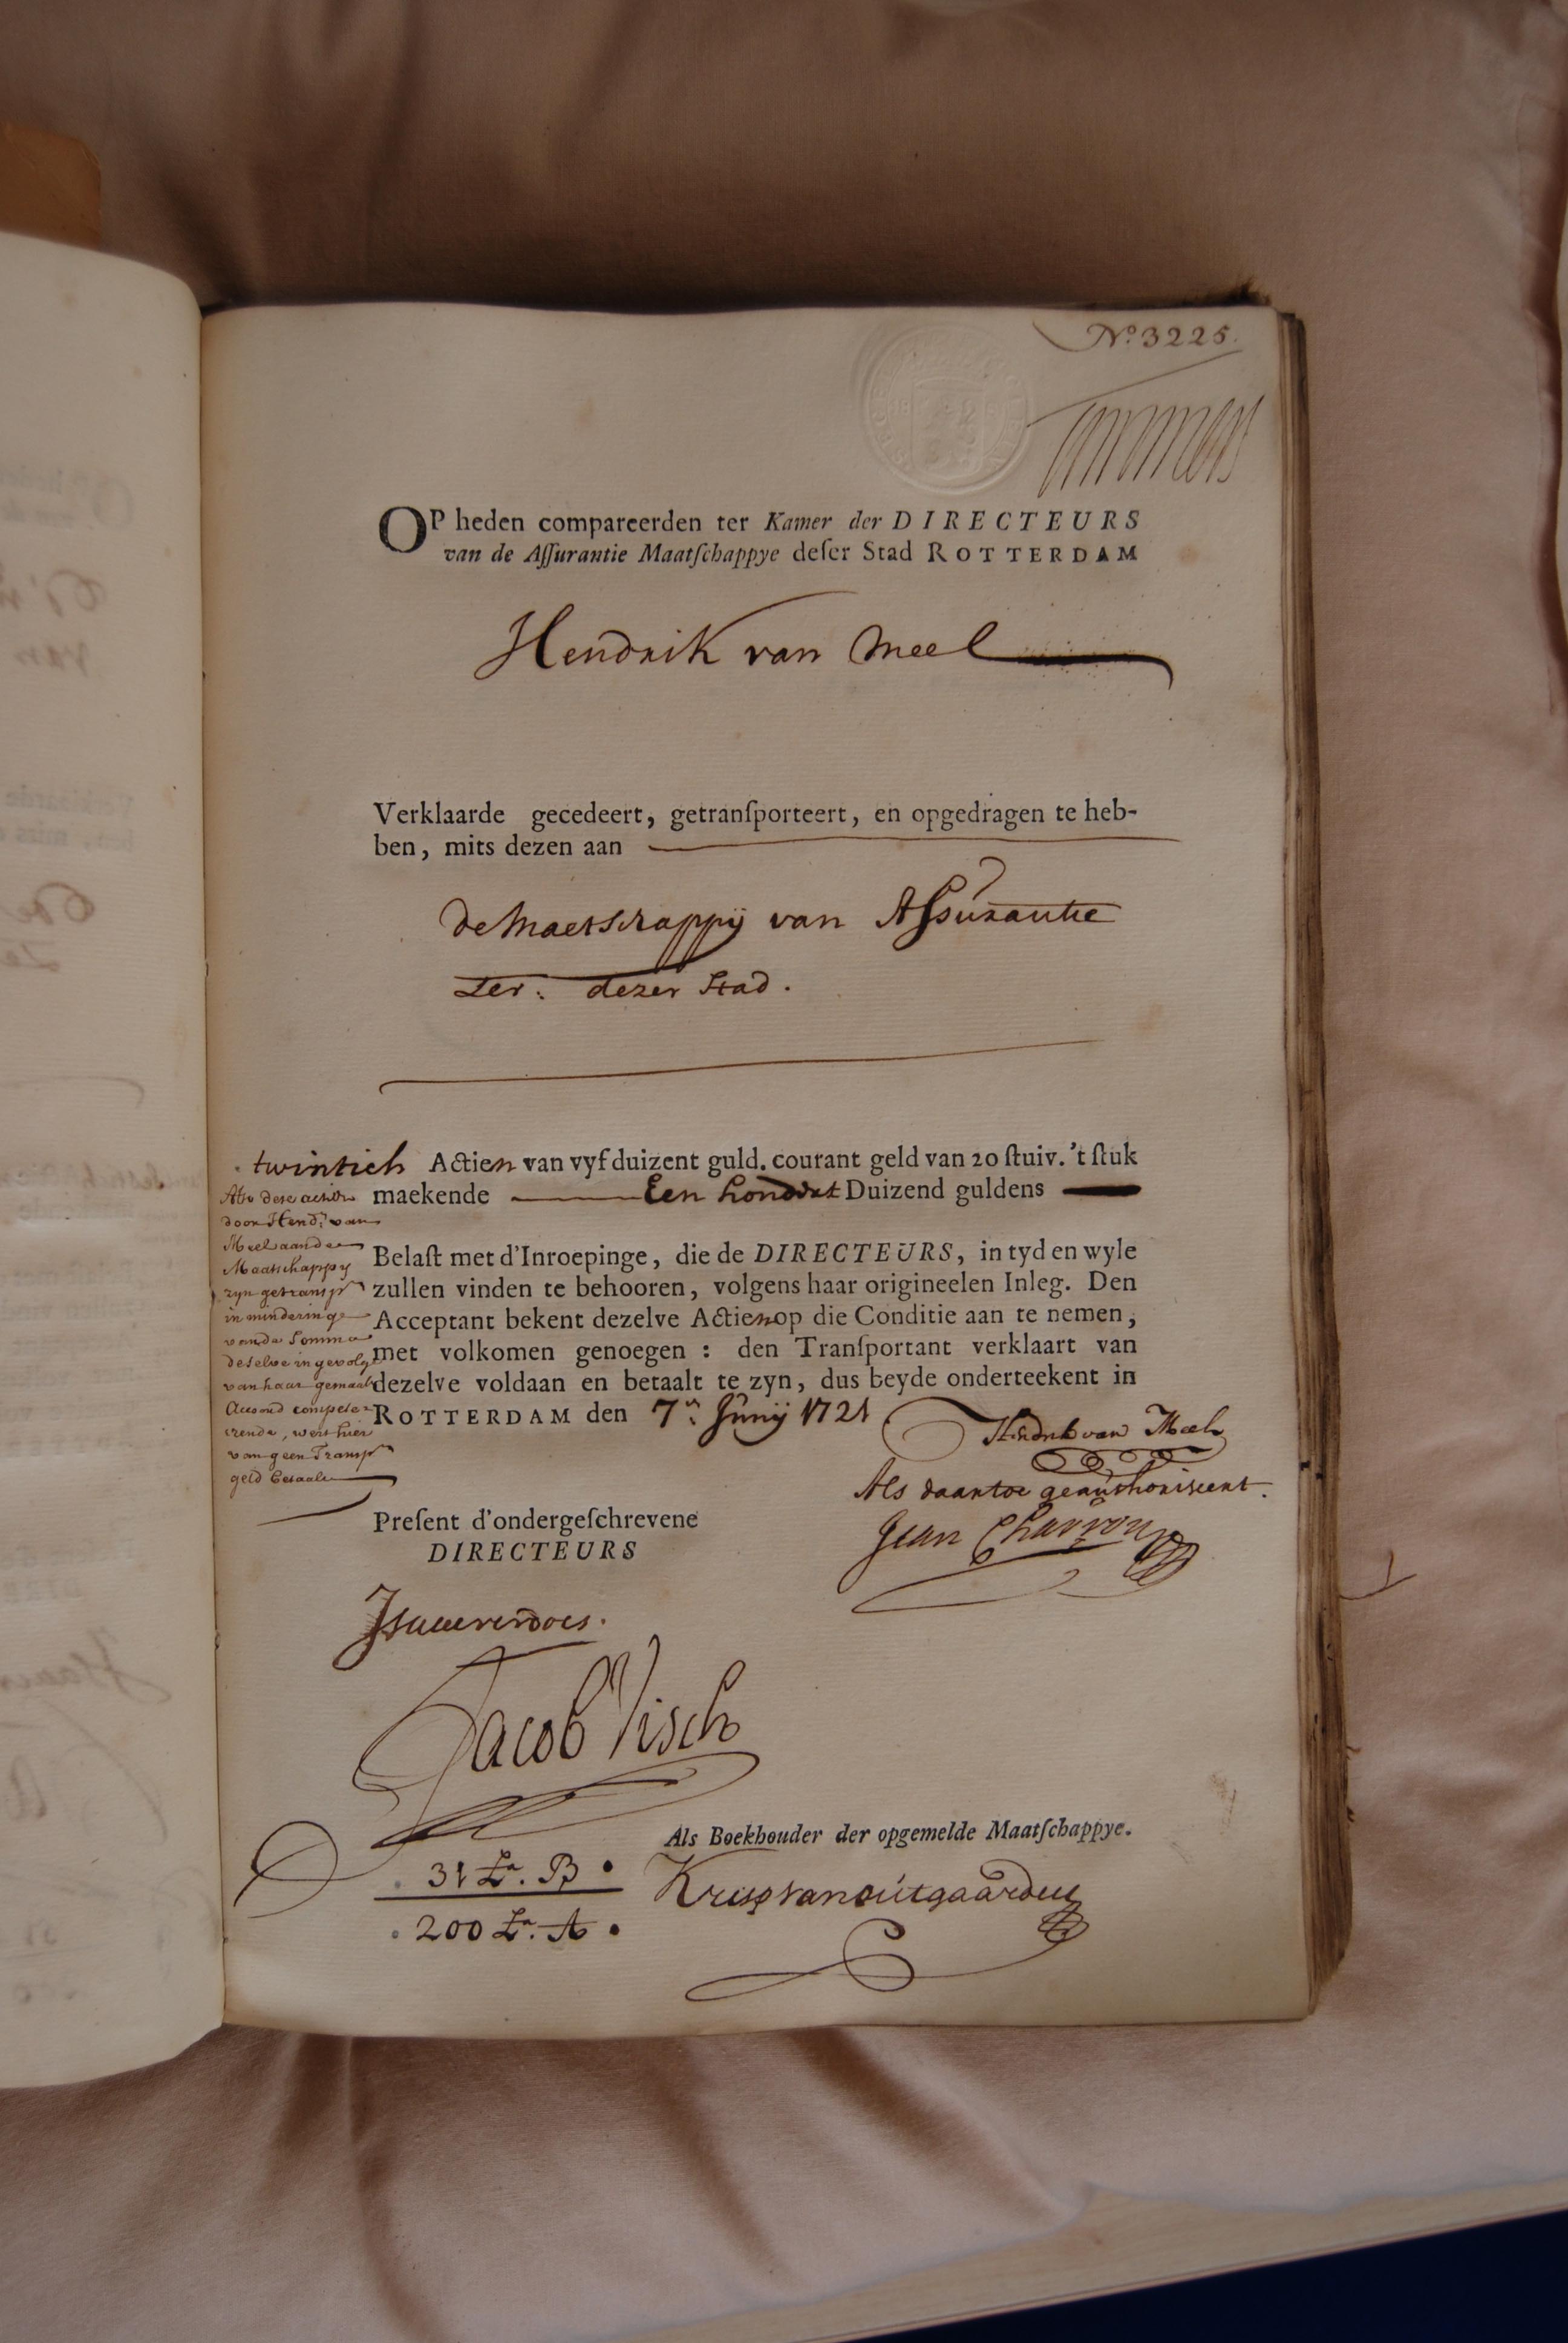 No. 3225.
OP heden compareerden ter Kamer der DIRECTEURS
van de Aſſurantie Maatſchappye deſer Stad ROTTERDAM
Hendrik van Meel
Verklaarde gecedeert, getranſporteert, en opgedragen te heb-
ben, mits dezen aan
de Maetschappij van Assurantie
ter: dezer Stad.
twintich Actien van vyf duizent guld. courant geld van 20 ſtuiv. 't ſtuk
maekende Een hondert Duizend guldens
Also dese actien
door Hendr. van
Meel aande
Maatschappy
zyn getransp.
in minderinge
vande Somma
deselve in gevolge
van haar gemaakt
Accoord competerende, wert hier
van geen Transp.
geld betaalt
Belaſt met d'Inroepinge, die de DIRECTEURS, in tyd en wyle
zullen vinden te behooren, volgens haar origineelen Inleg. Den
Acceptant bekent dezelve Actien op die Conditie aan te nemen,
met volkomen genoegen : den Tranſportant verklaart van
dezelve voldaan en betaalt te zyn, dus beyde onderteekent in
ROTTERDAM den 7n. Junij 1721
Hendrik van Meel
Als daartoe geauthoriseert.
Jean Charron
Preſent d'ondergeſchrevene
DIRECTEURS
Jacob Visch
Als Boekhouder der opgemelde Maatſchappye.
31 La. B
200 La. A